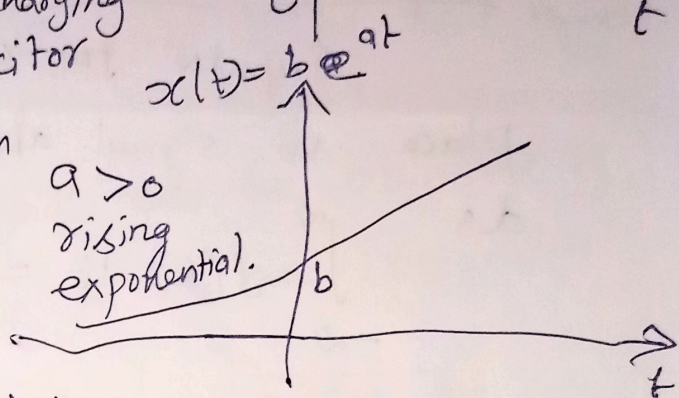 citor
t
x(t) = b e^at
a > 0
rising
exponential.
b
t